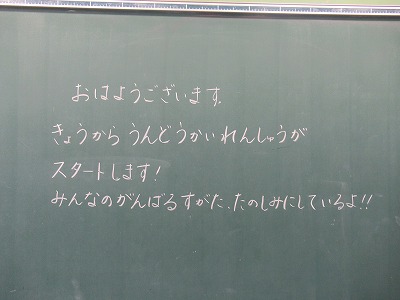 おはようございます。
きょうから うんどうかいれんしゅうが
スタートします!
みんなのがんばるすがた、たのしみにしているよ!!